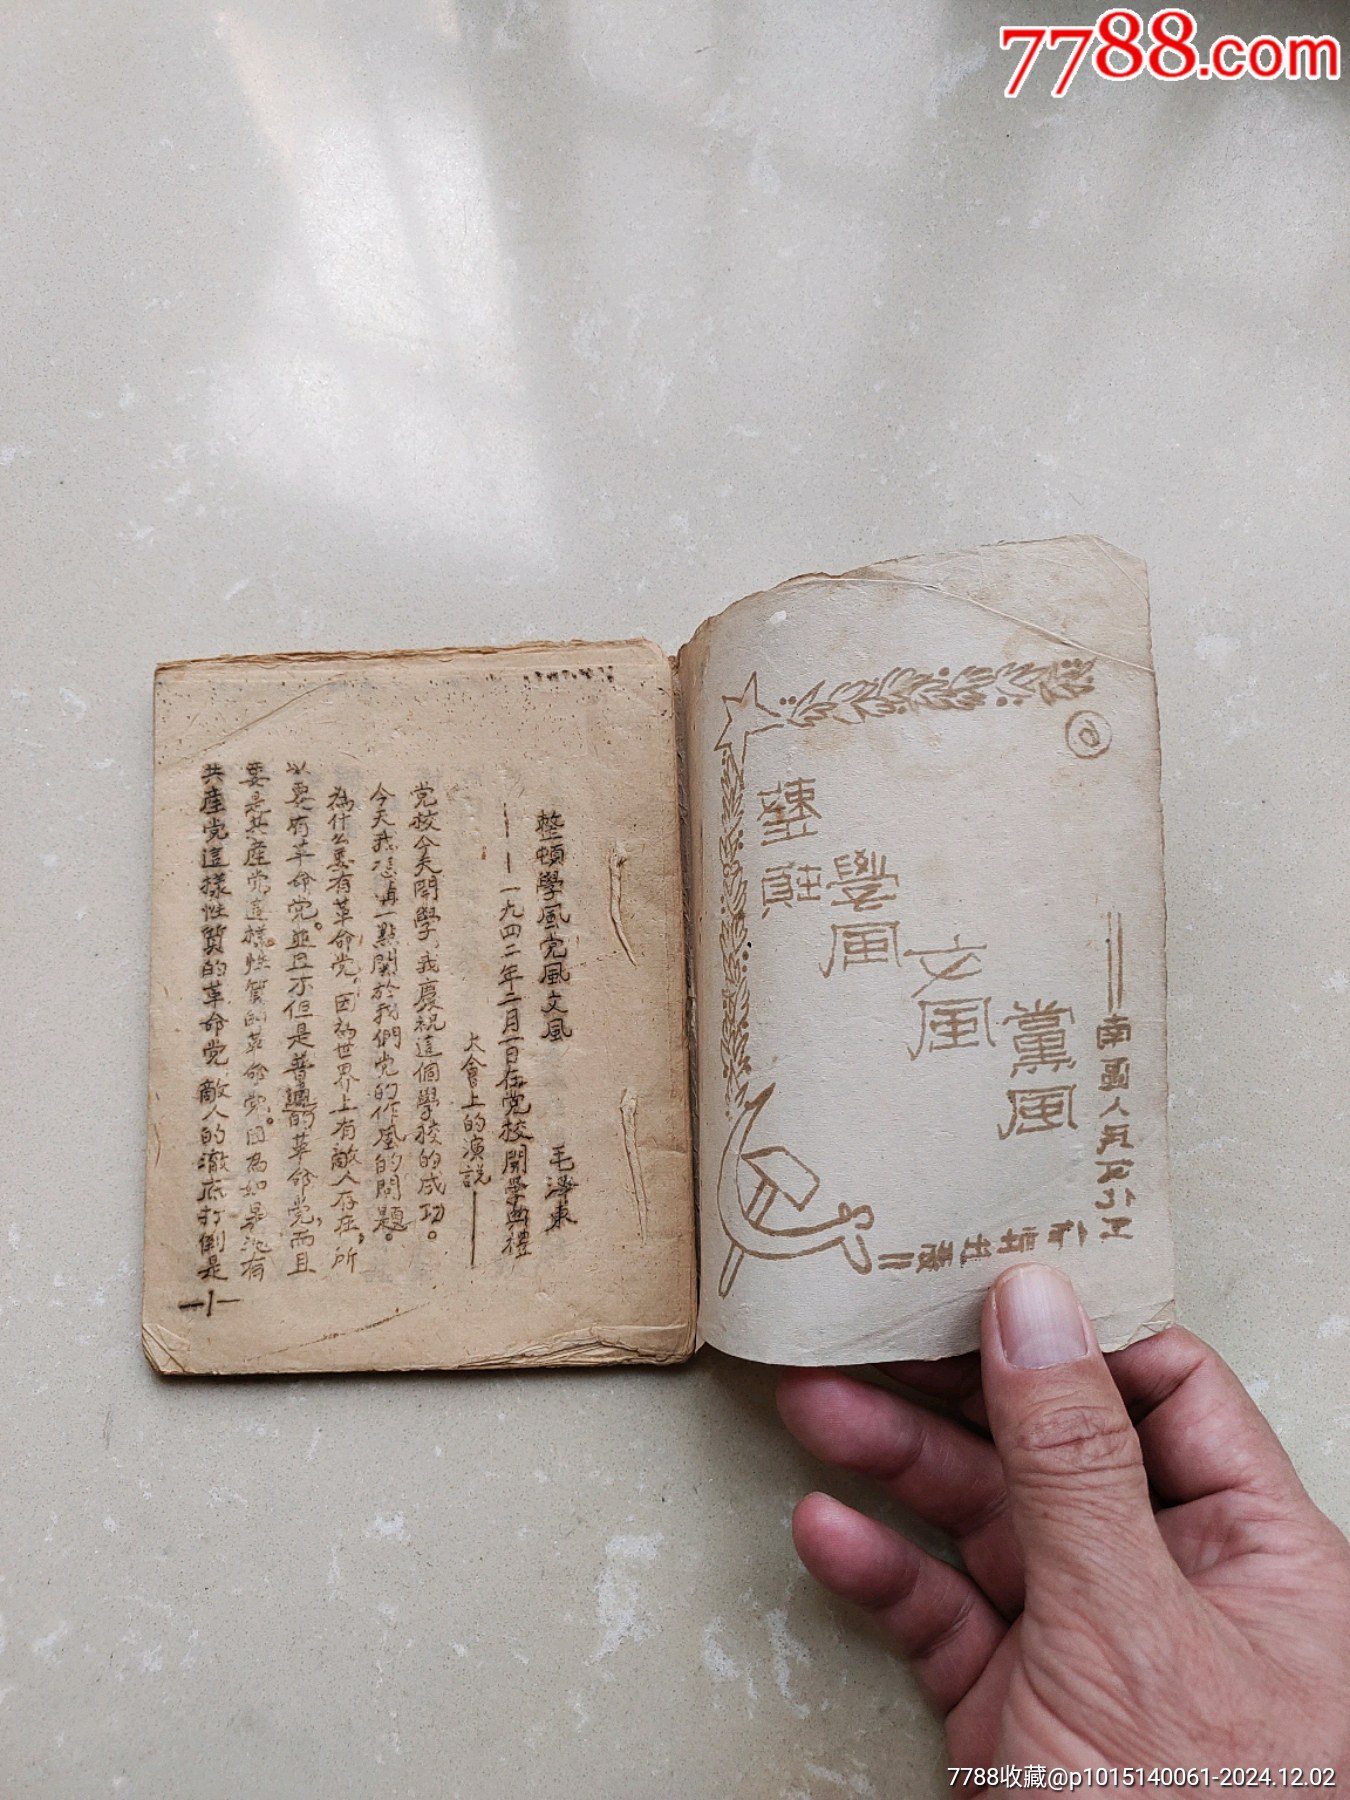 7788.com
整頓
學風
文風
黨風
整頓學風党風文風
毛澤東
——一九四二年二月一日在党校開學典禮
大會上的演說——
党校今天開學，我慶祝這個學校的成功。
今天我想講一點關於我們党的作風的問題。
為什么要有革命党，因為世界上有敵人存在，所
以要有革命党。並且不但是普通的革命党，而且
要是共產党這樣性質的革命党。因為如果沒有
共產党這樣性質的革命党，敵人的澈底打倒是
—1—
7788收藏@p1015140061-2024.12.02